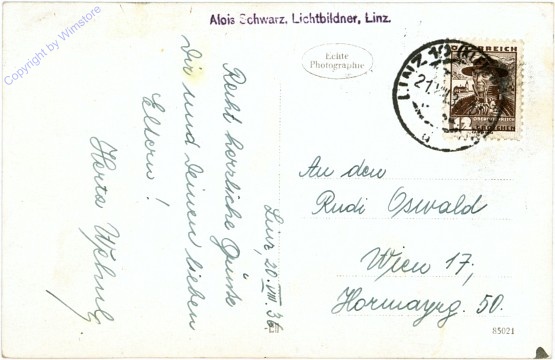 Copyright by Wimstore
Alois Schwarz, Lichtbildner, Linz.
Echte
Photographie
LINZ
21.VIII.3
ÖSTERREICH
12
OBERÖSTERREICH
GROSCHEN
Linz, 20. VIII. 36
Recht herzliche Grüße
Dir und Deinen lieben
Eltern!
Herta
An den
Rudi Oswald
Wien 17,
Hormayrg. 50.
85021